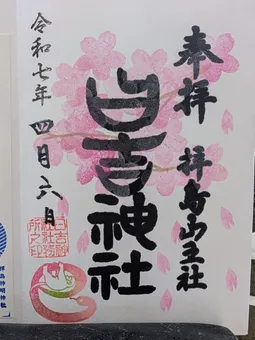 奉拝 拝島山王社
日吉神社
令和七年 四月六日
日吉神
社社務
所之印